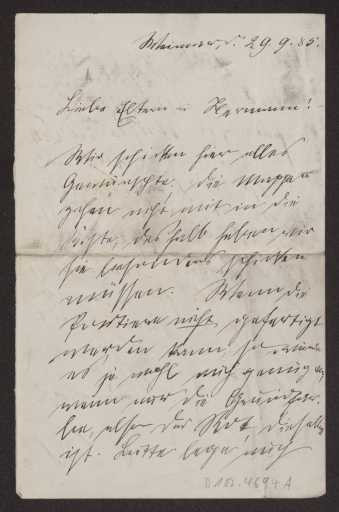 Weimar, d. 29.9.85.
Liebe Eltern u Hermann!
Wir schicken hier alles
Gewünschte. Die Mappe
gehen nicht mit in die
Kiste, deshalb haben wir
sie besonders schicken
müssen. Wenn die
nicht gefertigt
werden kann, so
es ja wohl auch genug
wenn nur die Grundfar-
be, also das Rot dieselbe
ist. Bitte legt mich
D 182.4694 A